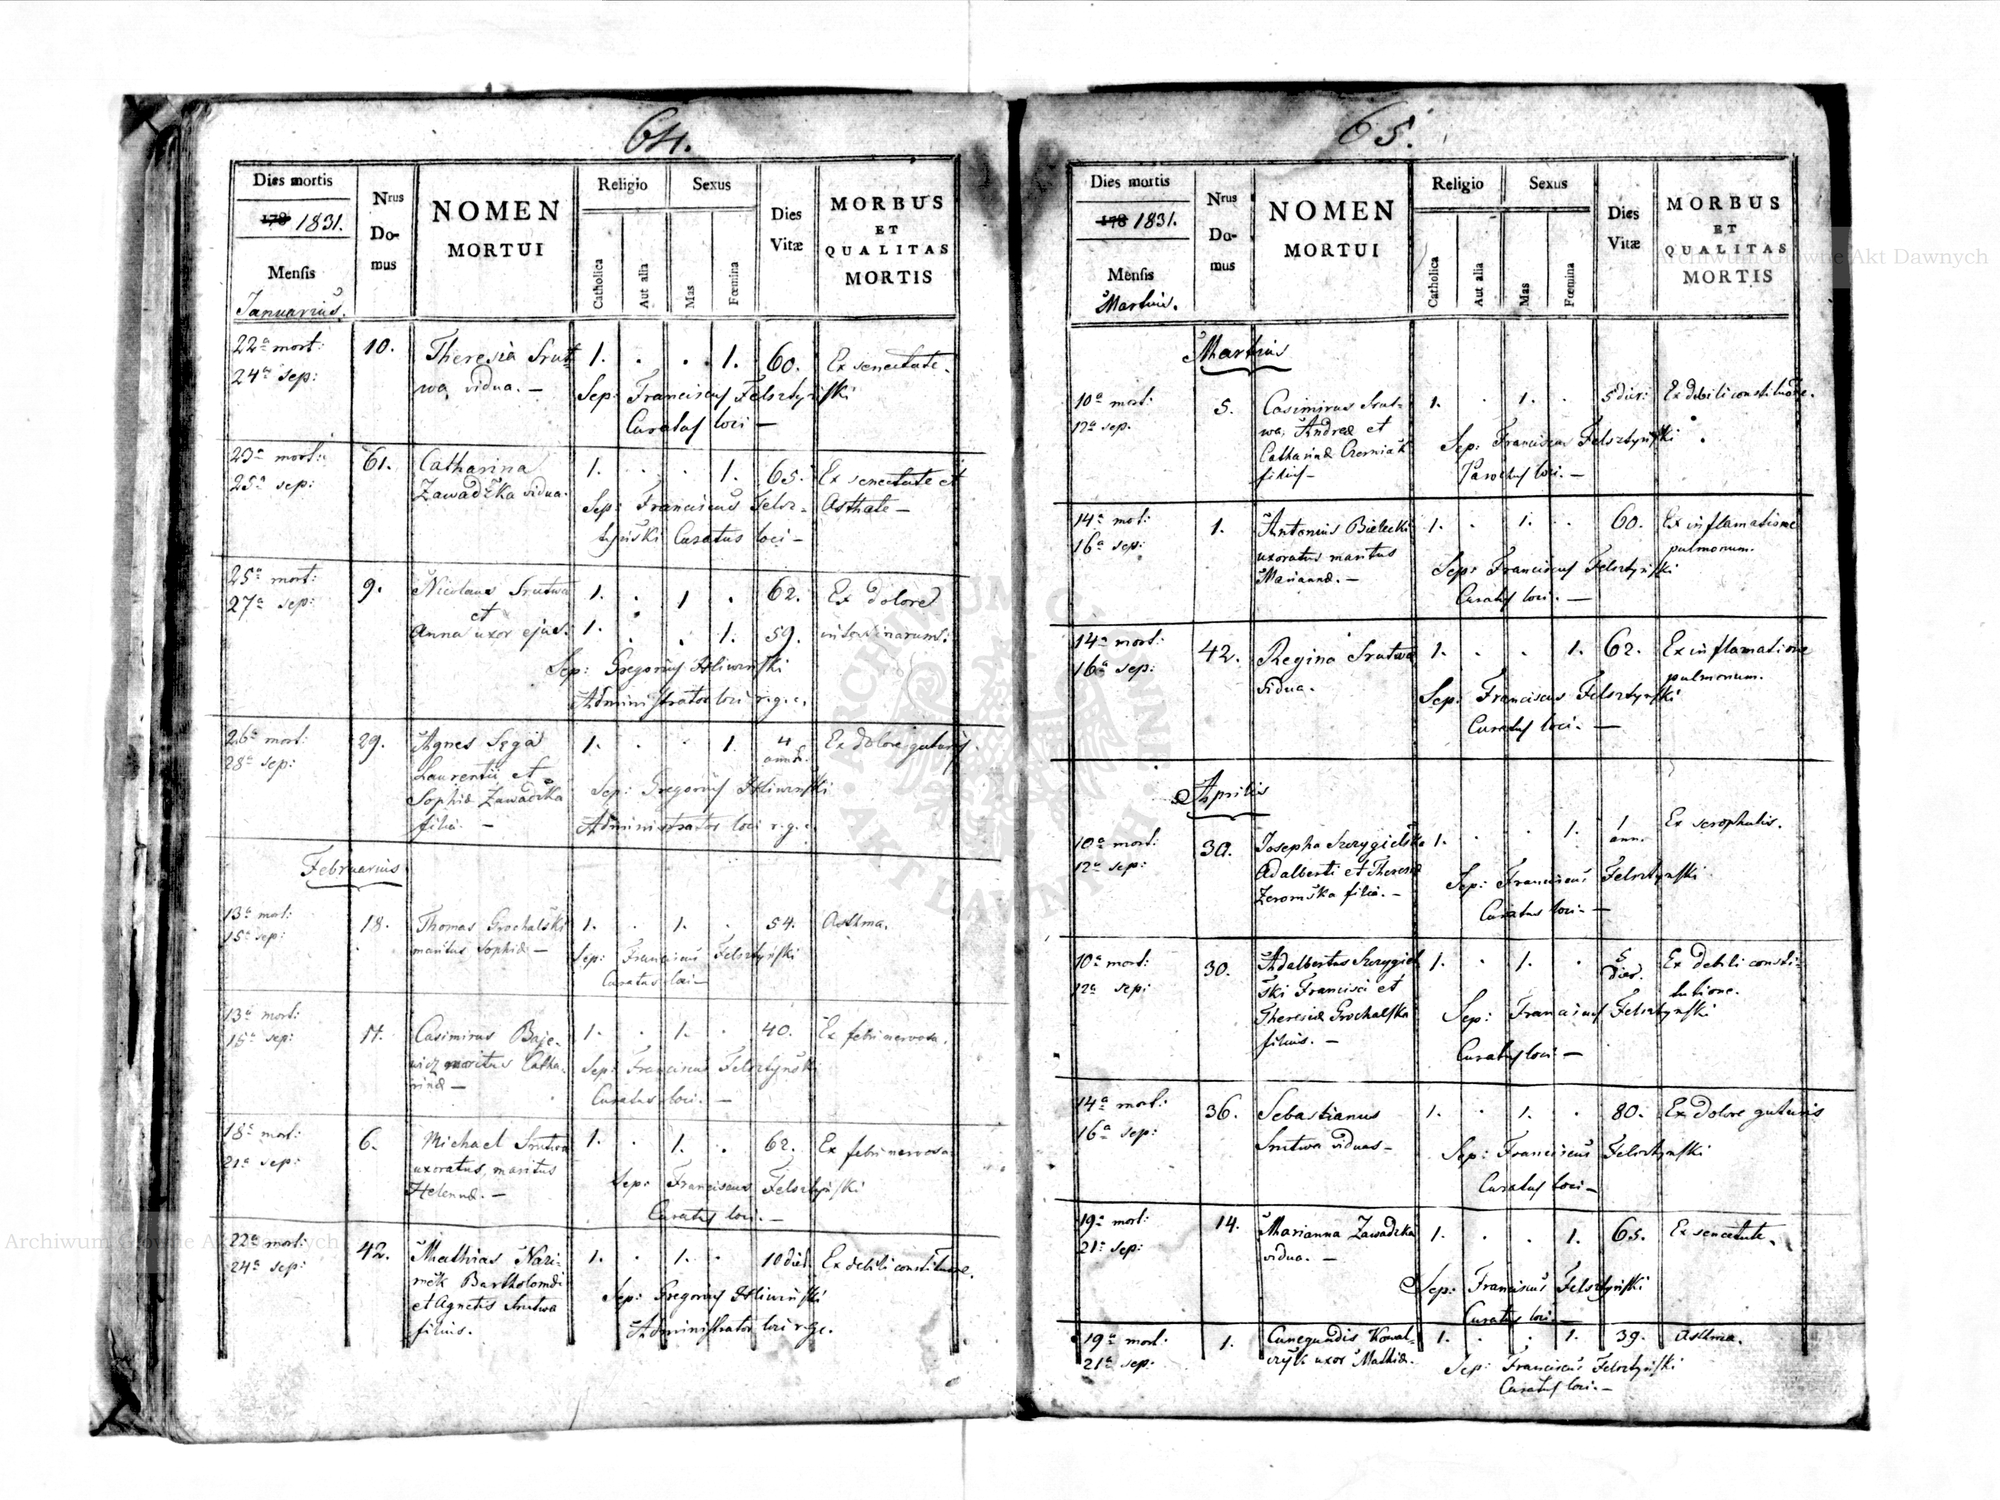 64.
Dies mortis
Nrus Domus
NOMEN MORTUI
Religio
Sexus
Dies Vitæ
MORBUS ET QUALITAS MORTIS
178 1831.
Mensis
Januarius.
Catholica
Aut alia
Mas
Fœmina
22a mort: 10. Theresia Srut- 1. . . 1. 60. Ex senectute.
24a sep: wa vidua. — Sep: Franciscus Felsztyński
Curatus loci —
23a mort: 61. Catharina 1. . . 1. 65. Ex senectute et
25a sep: Zawadzka vidua. Sep: Franciscus Felsz- Asthate —
tyński Curatus loci —
25a mort: 9. Nicolaus Srutwa 1. . 1 . 62. Ex dolore
27a sep: et
Anna uxor ejus. 1. . . 1. 59. intestinarum:
Sep: Gregorius
Administrator loci r.g.c.
26a mort: 29. Agnes Sęga 1. . . 1. 4 Ex dolore guturis.
28a sep: Laurentii et
annor.
Sophiæ Zawadzka Sep: Gregorius
filia. — Administrator loci r.g.c.
Februarius
13a mort: 18. Thomas Grochalski 1. . 1. . 54. Asthma.
15a sep: maritus Sophiæ — Sep: Franciscus Felsztyński
Curatus loci —
13a mort: 17. Casimirus Baje- 1. . 1. . 40. Ex febri nervosa.
15a sep: wicz maritus Catha- Sep: Franciscus Felsztyński
rinæ — Curatus loci. —
18a mort: 6. Michael Srutwa 1. . 1. . 62. Ex febri nervosa.
21a sep: uxoratus, maritus Sep: Franciscus Felsztyński
Helennæ. — Curatus loci. —
22a mort: 42. Mathias 1. . 1. . 10 die Ex debili constitutione.
24a sep: Bartholomæi
et Agnetis Srutwa Sep: Gregorius
filius. Administrator loci r.g.c.
65.
Dies mortis
Nrus Domus
NOMEN MORTUI
Religio
Sexus
Dies Vitæ
MORBUS ET QUALITAS MORTIS
178 1831.
Mensis
Martius.
Catholica
Aut alia
Mas
Fœmina
Martius
10a mort: 5. Casimirus Srut- 1. . 1. . 5 dier: Ex debili constitutione.
12a sep. wa, Andreæ et Sep: Franciscus Felsztyński
Catharinæ Czerniak
filius — Parochus loci. —
14a mort: 1. Antonius Bielecki 1. . 1. . 60. Ex inflamatione
16a sep: uxoratus maritus pulmonum.
Mariannæ. — Sep: Franciscus Felsztyński
Curatus loci. —
14a mort: 42. Regina Srutwa 1. . . 1. 62. Ex inflamatione
16a sep: vidua. pulmonum.
Sep: Franciscus Felsztyński
Curatus loci. —
Aprilis
10a mort: 30. Josepha Szczygielska 1. . . 1. 1 ann. Ex scrophulis.
12a sep: Adalberti et Theresiæ Sep: Franciscus Felsztynski
Zeromska filia. — Curatus loci. —
10a mort: 30. Adalbertus Szczygiel 1. . 1. . 5 dier. Ex debili consti-
12a sep: ski Francisci et tutione.
Theresiæ Grochalska Sep: Franciscus Felsztynski
filius. — Curatus loci —
14a mort: 36. Sebastianus 1. . 1. . 80. Ex dolore guturis
16a sep: Srutwa viduus — Sep: Franciscus Felsztynski
Curatus loci —
19a mort: 14. Marianna Zawadzka 1. . . 1. 65. Ex senectute.
21a sep: vidua. —
Sep: Franciscus Felsztyński
Curatus loci —
19a mort. 1. Cunegundis Kowal- 1. . . 1. 39. Asthma.
21a sep. czyk uxor Mathiæ. Sep: Franciscus Felsztyński
Curatus loci. —
Archiwum Główne Akt Dawnych
Archiwum Główne Akt Dawnych
ARCHIWUM GŁÓWNE AKT DAWNYCH